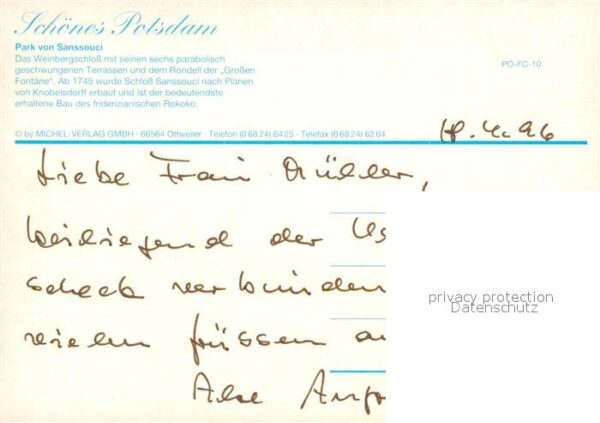 Schönes Potsdam
Park von Sanssouci
Das Weinbergschloß mit seinen sechs parabolisch
geschwungenen Terrassen und dem Rondell der „Großen
Fontäne“. Ab 1745 wurde Schloß Sanssouci nach Plänen
von Knobelsdorff erbaut und ist der bedeutendste
erhaltene Bau des friderizianischen Rokoko.
PO-FC-10
© by MICHEL-VERLAG GMBH - 66564 Ottweiler - Telefon (0 68 24) 64 25 - Telefax (0 68 24) 62 64
4.96
Liebe Frau Müller,
beiliegend der
scheck verbunden
vielen
privacy protection
Datenschutz